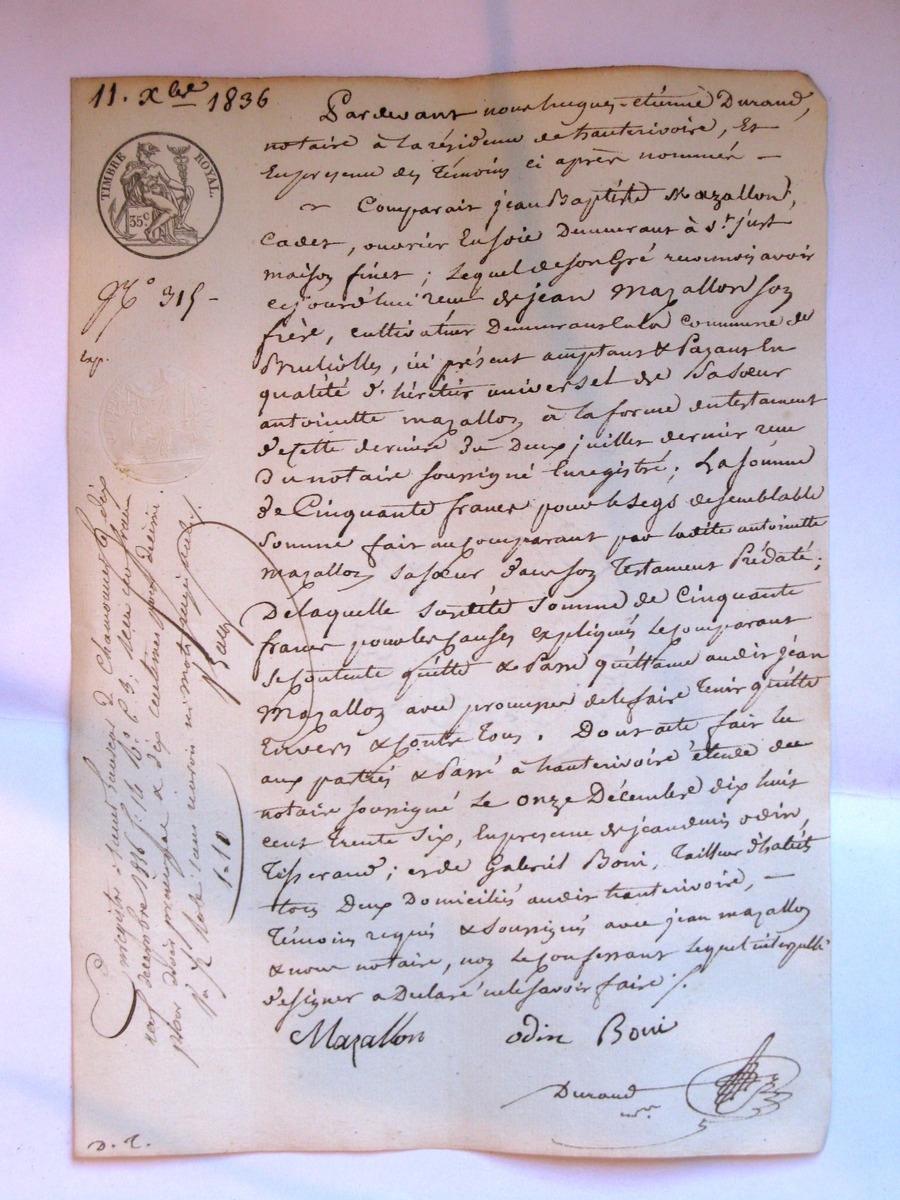 11. Xbre 1836
TIMBRE ROYAL
35 c
N° 315 -
Exp.
Pardevant nous hugues-etienne Durand,
notaire à la résidence de hauterivoire, Et
En presence des Témoins ci après nommés —
Comparait jean Baptiste Mazallon,
Cadet, ouvrier En soie Demeurant à St. just
maison finet ; Lequel de son Gré reconnois avoir
cejourd'hui recu de jean Mazallon son
frère, cultivateur Demeurant En la commune de
Brulliolles, ici présent acceptant & Payant En
qualité d'héritier universel de Sa sœur
antoinette mazallon à la forme du testament
d'icelle dernière du Deux juillet dernier recu
Du notaire soussigné Enregistré ; La somme
de Cinquante francs pour le legs de semblable
somme fait au comparant par ladite antoinette
Mazallon sa sœur dans son Testament Prédaté ;
De laquelle susdite somme de Cinquante
francs pour les causes expliqués le comparant
se contente quitte & Passe quittance audit jean
Mazallon avec promesse de le faire tenir quitte
Envers & contre Tous . Dont acte fait lu
aux parties & Passé à hauterivoire étude du
notaire soussigné Le onze Décembre dix huit
cent trente six, En presence de jean denis odin,
Tisserand ; et de Gabriel Boni, Tailleur d'habits
tous Deux Domiciliés audit hauterivoire, —
Témoins requis & Soussignés avec jean mazallon
& nous notaire, non le confessant Lequel interpellé
de signer a Declaré ne le savoir faire /.
Mazallon odin Boni
Durand
nre
Enregistré à Saint Laurent de Chamousset le dix
neuf decembre 1836 f° 14 V° C 3; reçu cinquante
pour droit &  dix centimes pour décime.
1-10
D. T.